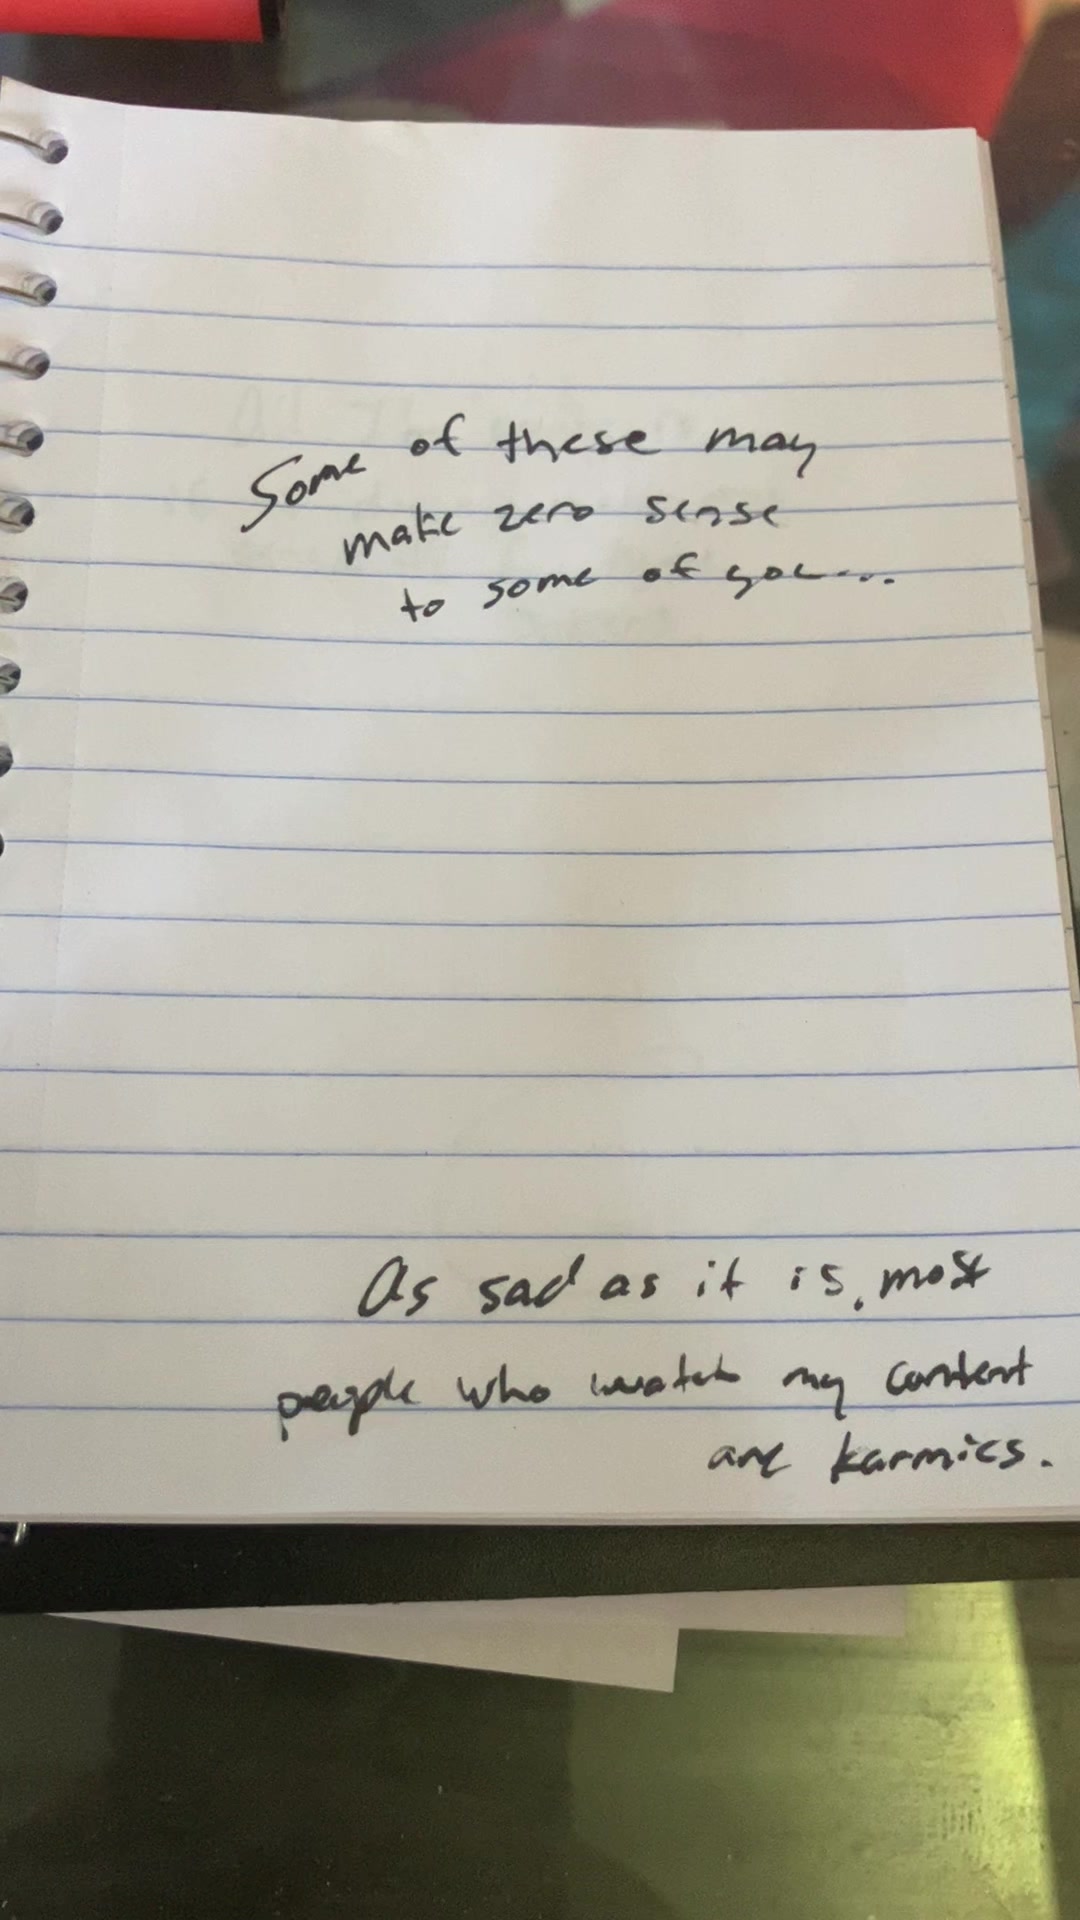 Some of these may
make zero sense
to some of you...
As sad as it is, most
people who watch my content
are karmics.